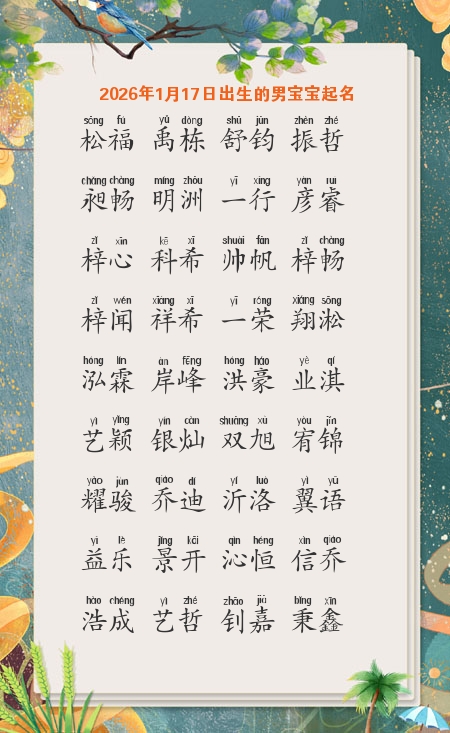 2026年1月17日出生的男宝宝起名
sōng fú yǔ dòng shū jūn zhèn zhé
松福 禹栋 舒钧 振哲
chǎng chàng míng zhōu yī xíng yàn ruì
昶畅 明洲 一行 彦睿
zǐ xīn kē xī shuài fān zǐ chàng
梓心 科希 帅帆 梓畅
zǐ wén xiáng xī yī róng xiáng sōng
梓闻 祥希 一荣 翔淞
hóng lín àn fēng hóng háo yè qí
泓霖 岸峰 洪豪 业淇
yì yǐng yín càn shuāng xù yòu jǐn
艺颖 银灿 双旭 宥锦
yào jùn qiáo dí yí luò yì yǔ
耀骏 乔迪 沂洛 翼语
yì lè jǐng kāi qìn héng xìn qiáo
益乐 景开 沁恒 信乔
hào chéng yì zhé zhāo jiā bǐng xīn
浩成 艺哲 钊嘉 秉鑫